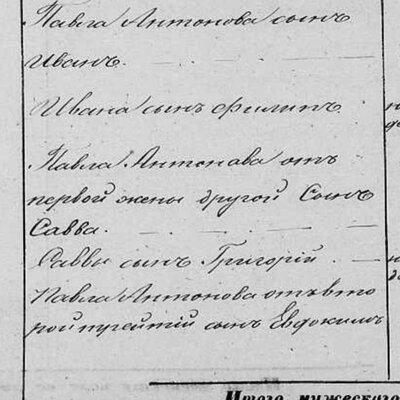 Павла Антонова сынъ
Иванъ.
Ивана сынъ Филипъ
Павла Антонова отъ
первой жены другой Сынъ
Савва.
Саввы сынъ Григорій
Павла Антонова отъ вто
рой третій сынъ Евдокимъ
Итого мужескаго